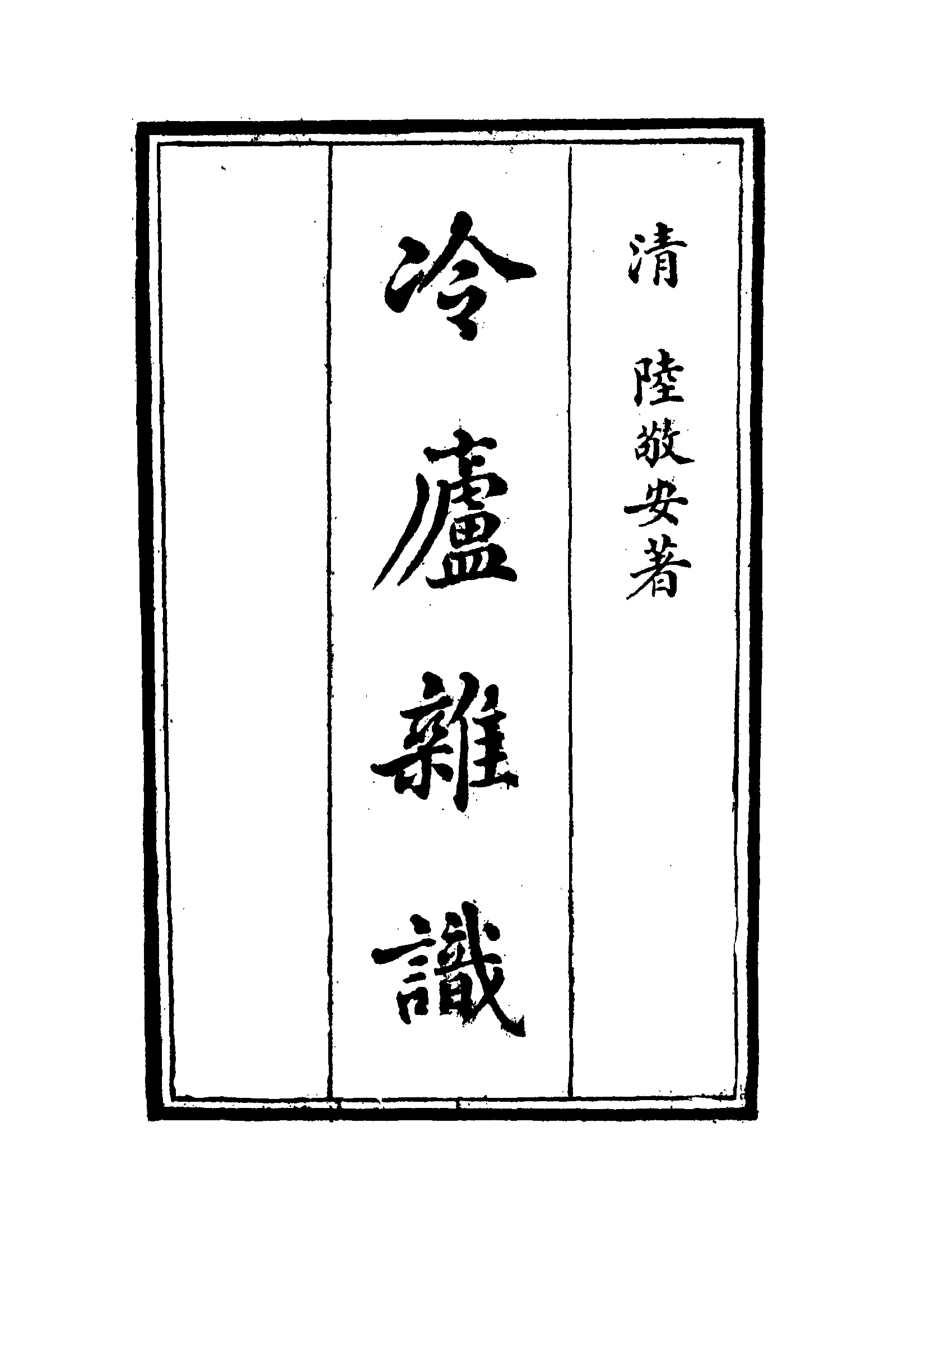 清 陸敬安著
冷廬雜識